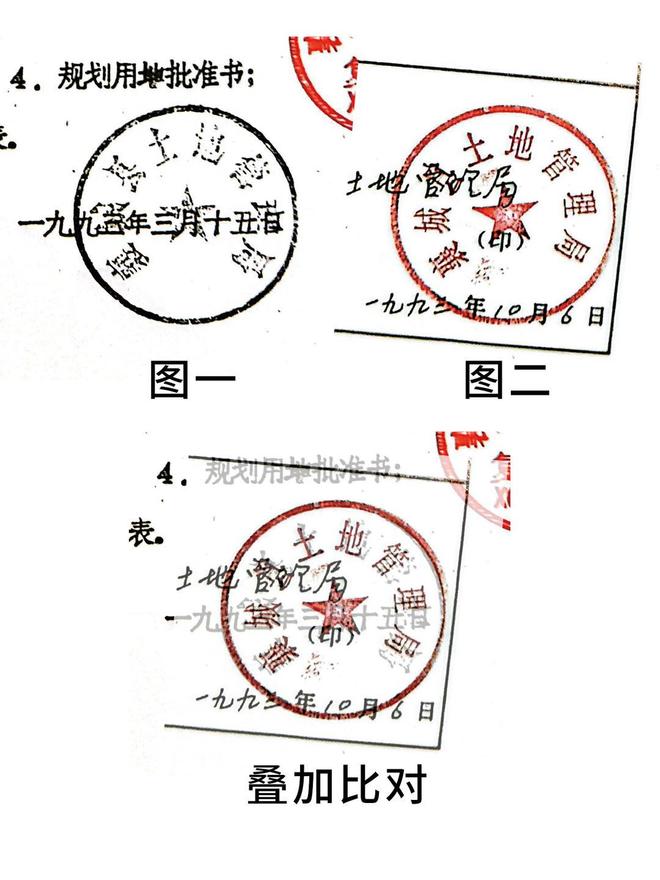 4．规划用地批准书；
表。
土地管理局
一九九三年三月十五日
图一
土地管理局
城
土地管理局
（印）
一九九三年10月6日
图二
4．规划用地批准书；
表。
土地管理局
城
土地管理局
（印）
一九九三年三月十五日
一九九三年10月6日
叠加比对